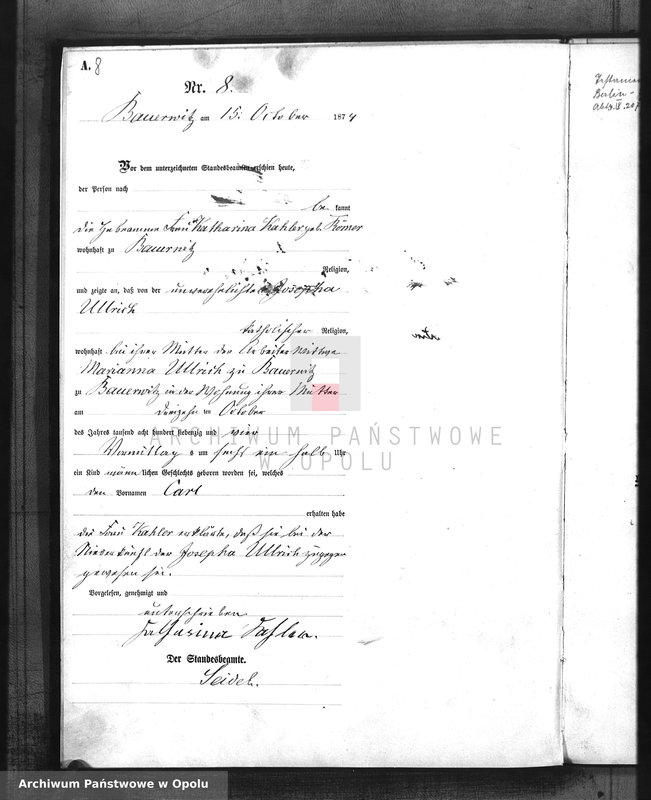 A. 8
Nr. 8.
Bauerwitz am 15. October 1874
Vor dem unterzeichneten Standesbeamten erschien heute,
der Person nach
be kannt
die Hebeamme Frau Katharina Kahler geb. Römer
wohnhaft zu Bauerwitz
Religion,
und zeigte an, daß von der unverehelichten Josepha
Ullrich
katholischer Religion,
wohnhaft bei ihrer Mutter der Arbeiter Wittwe
Marianna Ullrich zu Bauerwitz
zu Bauerwitz in der Wohnung ihrer Mutter
am dreizehn ten October
des Jahres tausend acht hundert siebenzig und vier
Vormittag s um sechs ein halb Uhr
ein Kind männ lichen Geschlechts geboren worden sei, welches
den Vornamen Carl
erhalten habe
die Frau Kahler erklärte, daß sie bei der
Niederkunft der Josepha Ullrich zugegen
gewesen sei.
Vorgelesen, genehmigt und
unterschrieben
Katharina Kahler.
Der Standesbeamte.
Seidel.
Berlin -
ARCHIWUM PAŃSTWOWE
W OPOLU
Archiwum Państwowe w Opolu